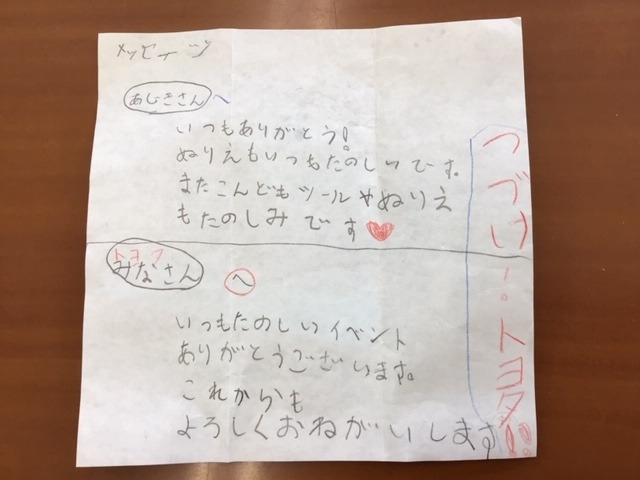 メッセージ
あじきさんへ
いつもありがとう!
ぬりえもいつもたのしいです。
またこんどもツールやぬりえ
もたのしみです
トヨタ
みなさんへ
いつもたのしいイベント
ありがとうございます。
これからも
よろしくおねがいします
つづけ!トヨタ!!